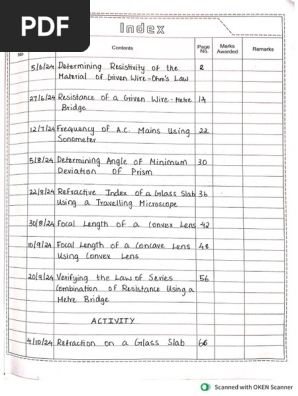 PDF
Index
Contents
Page No.
Marks Awarded
Remarks
5/6/24 Determining Resistivity of the 2
Material of Given Wire-Ohm's Law
27/6/24 Resistance of a Given Wire-Metre 14
Bridge
12/7/24 Frequency of A.C. Mains Using 22
Sonometer
5/8/24 Determining Angle of Minimum 30
Deviation of Prism
22/8/24 Refractive Index of a Glass Slab 36
Using a Travelling Microscope
30/8/24 Focal Length of a Convex Lens 42
10/9/24 Focal Length of a Concave Lens 48
Using Convex Lens
20/9/24 Verifying the Law of Series 56
Combination of Resistance Using a
Metre Bridge
ACTIVITY
4/10/24 Refraction on a Glass Slab 66
Scanned with OKEN Scanner